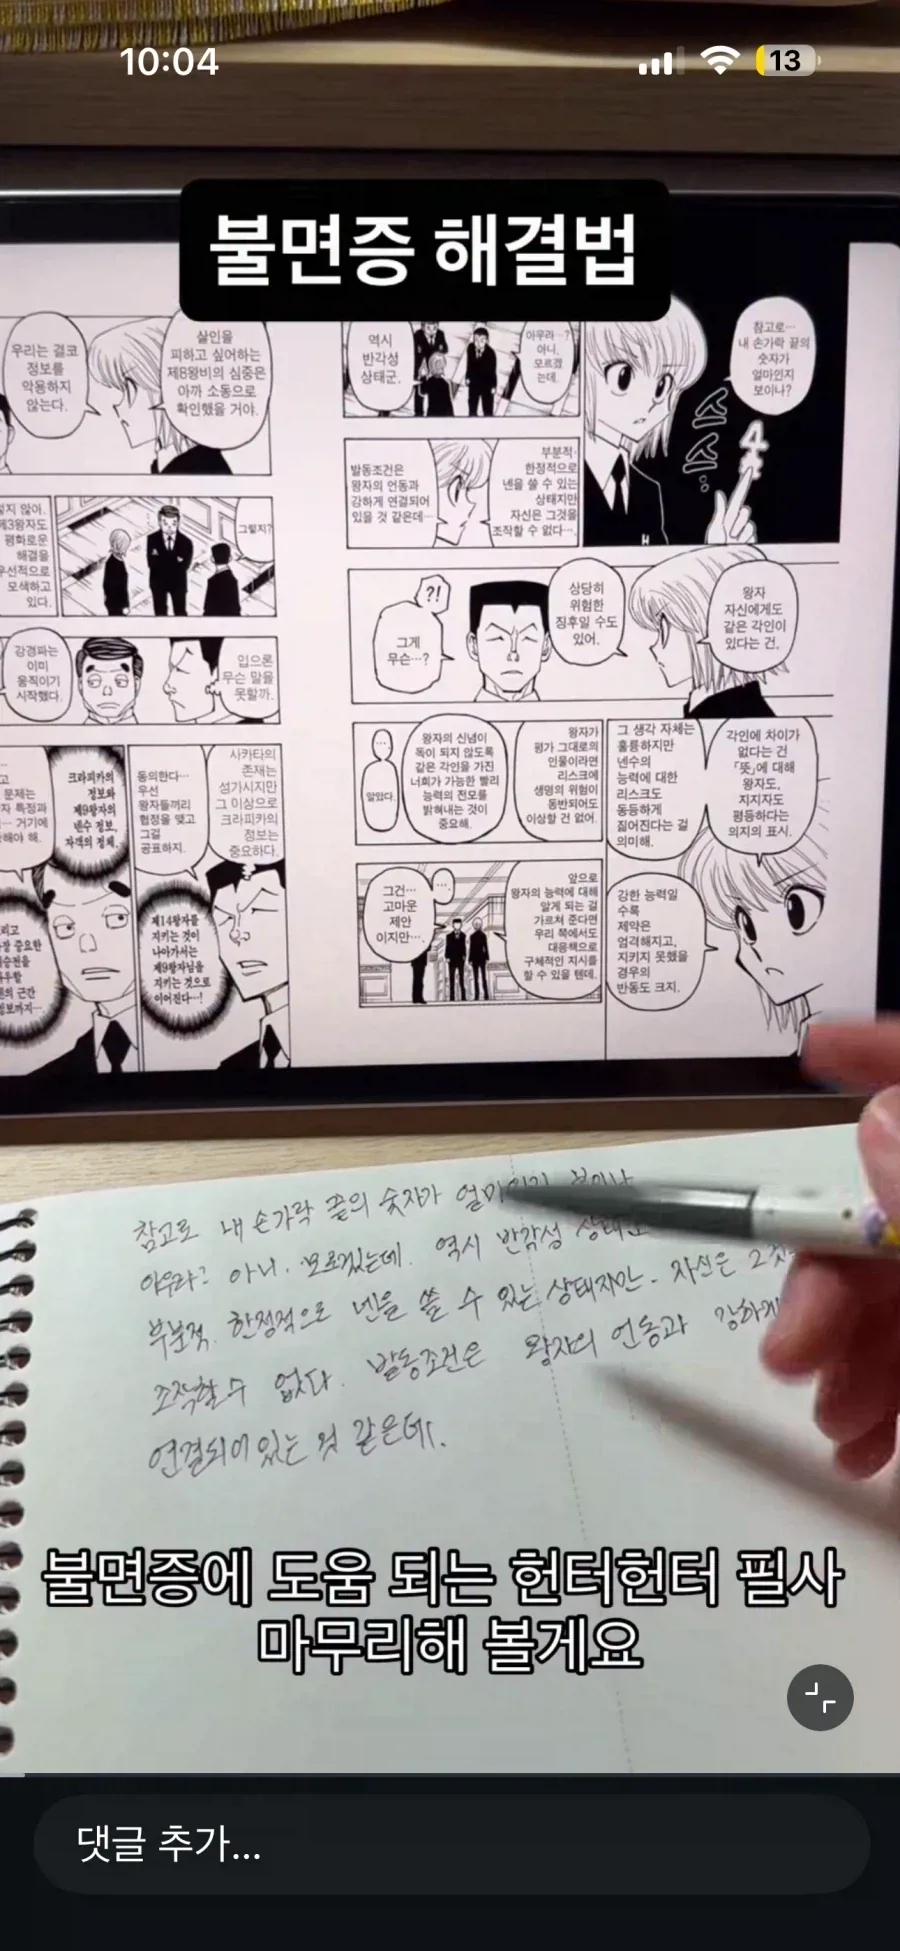 10:04
13
불면증 해결법
참고로…
내 손가락 끝의
숫자가
얼마인지
보이나?
스
스
4
아우라…?
아니.
모르겠
는데.
역시
반각성
상태군.
부분적·
한정적으로
넨을 쓸 수 있는
상태지만
자신은 그것을
조작할 수 없다….
발동조건은
왕자의 언동과
강하게 연결되어
있을 것 같은데…
왕자
자신에게도
같은 각인이
있다는 건,
상당히
위험한
징후일 수도
있어.
?!
그게
무슨…?
각인에 차이가
없다는 건
「뜻」에 대해
왕자도,
지지자도
평등하다는
의지의 표시.
그 생각 자체는
훌륭하지만
넨수의
능력에 대한
리스크도
동등하게
짊어진다는 걸
의미해.
왕자가
평가 그대로의
인물이라면
리스크에
생명의 위험이
동반되어도
이상할 건 없어.
왕자의 신념이
독이 되지 않도록
같은 각인을 가진
너희가 가능한 빨리
능력의 전모를
밝혀내는 것이
중요해.
…
알았다.
강한 능력일
수록
제약은
엄격해지고,
지키지 못했을
경우의
반동도 크지.
앞으로
왕자의 능력에 대해
알게 되는 걸
가르쳐 준다면
우리 쪽에서도
대응책으로
구체적인 지시를
할 수 있을 텐데.
…
그건…
고마운
제안
이지만….
살인을
피하고 싶어하는
제8왕비의 심중은
아까 소동으로
확인했을 거야.
우리는 결코
정보를
악용하지
않는다.
그렇지?
않아.
제3왕자도
평화로운
해결을
우선적으로
모색하고
있다.
입으론
무슨 말을
못할까.
강경파는
이미
움직이기
시작했다.
사카타의
존재는
성가시지만
그 이상으로
크라피카의
정보는
중요하다.
동의한다…
우선
왕자들끼리
협정을 맺고
그걸
공표하지.
제14왕자를
지키는 것이
나아가서는
제9왕자님을
지키는 것으로
이어진다…!
크라피카의
정보와
제9왕자의
넨수 정보,
자객의 정체.
문제는
특정과
거기에
해.
중요한
근간
참고로 내 손가락 끝의 숫자가 얼마인지 보이나
아우라? 아니. 모르겠는데. 역시 반각성 상태군
부분적. 한정적으로 넨을 쓸 수 있는 상태지만. 자신은 그것
조작할 수 없다. 발동조건은 왕자의 언동과 강하게
연결되어 있는 것 같은데.
불면증에 도움 되는 헌터헌터 필사
마무리해 볼게요
댓글 추가...